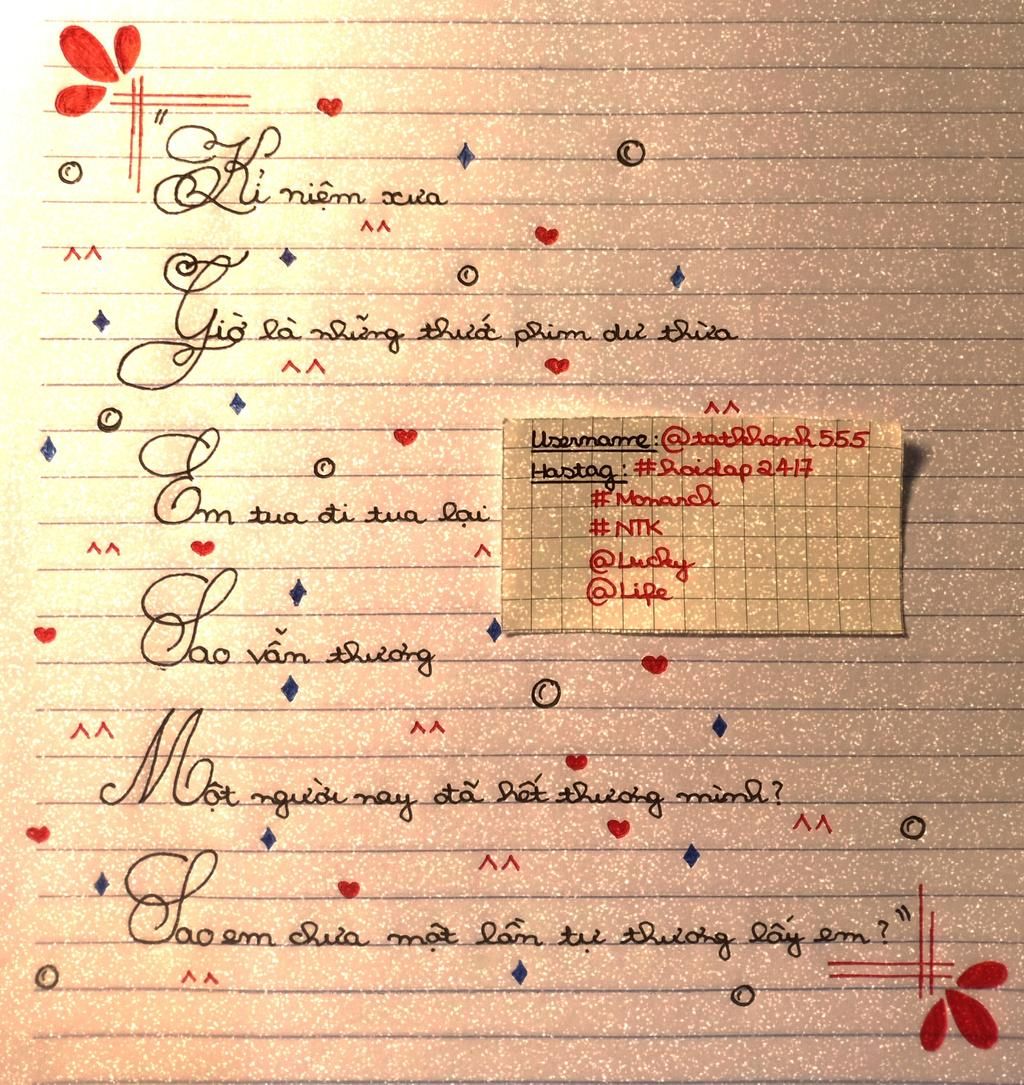 "Kỉ niệm xưa
Giờ là những thước phim dư thừa
Em tua đi tua lại
Sao vẫn thương
Một người nay đã hết thương mình?
Sao em chưa một lần tự thương lấy em?"
Username: @tatkhanh555
Hastag: #hoidap2417
#Monarch
#NTK
@Lucky
@Life